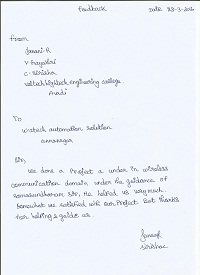 Feedback Date: 28-3-2016
From
Janani.R
V. Gayathri
C. Sirisha
veltech hightech engineering college.
Avadi
To
wistech automation solution
annanagar
Sir,
We done a Project a under in wireless
communication domain under the guidance of
Ramasundharam sir, He helped us very much.
Somewhat we satisfied with our Project But thanks
for helping & guide us.
Janani
Sirisha.C